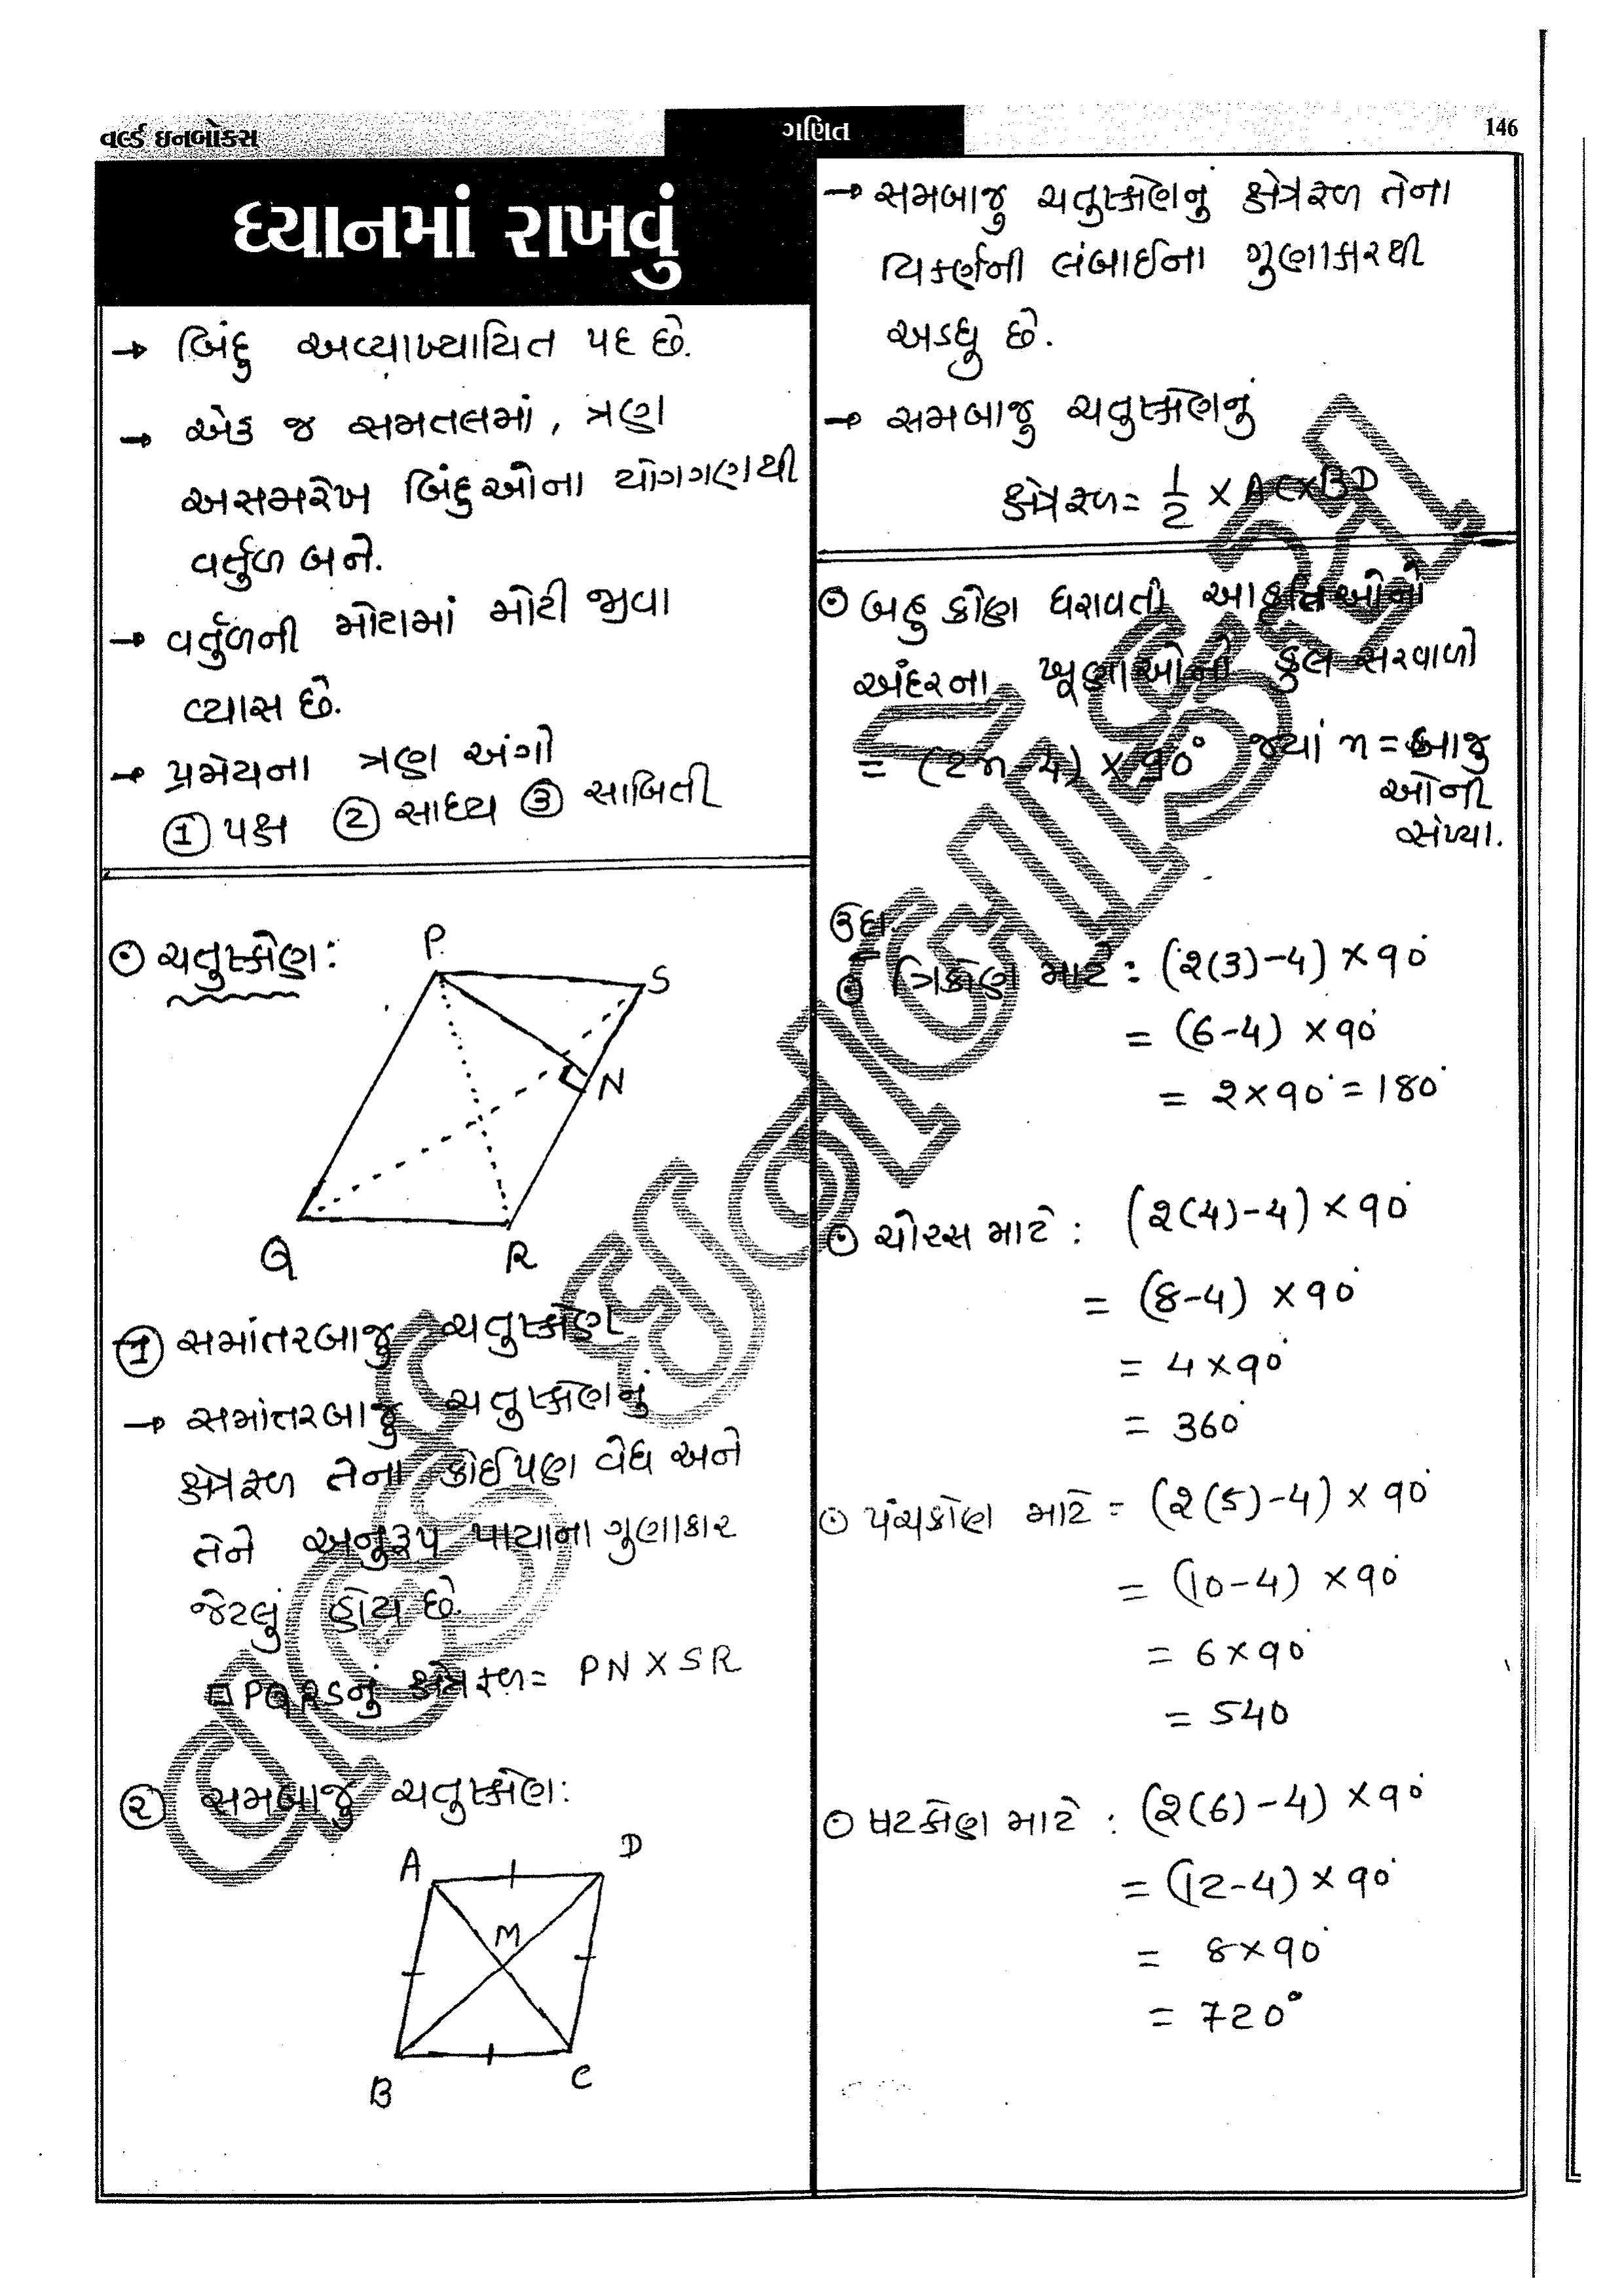 વર્લ્ડ ઇનબોક્સ
ગણિત
146
ધ્યાનમાં રાખવું
→ બિંદુ અવ્યાખ્યાયિત પદ છે.
→ એક જ સમતલમાં, ત્રણ
અસમરેખ બિંદુઓના યોગગણથી
વર્તુળ બને.
→ વર્તુળની મોટામાં મોટી જીવા
વ્યાસ છે.
→ પ્રમેયના ત્રણ અંગો
① પક્ષ ② સાધ્ય ③ સાબિતી
⊙ ચતુષ્કોણ:
P
S
N
Q
R
① સમાંતરબાજુ ચતુષ્કોણ
→ સમાંતરબાજુ ચતુષ્કોણનું
ક્ષેત્રફળ તેના કોઈપણ વેધ અને
તેને અનુરૂપ પાયાના ગુણાકાર
જેટલું હોય છે.
□PQRSનું ક્ષેત્રફળ = PN × SR
② સમબાજુ ચતુષ્કોણ:
A
D
M
B
C
→ સમબાજુ ચતુષ્કોણનું ક્ષેત્રફળ તેના
વિકર્ણની લંબાઈના ગુણાકારથી
અડધુ છે.
→ સમબાજુ ચતુષ્કોણનું
ક્ષેત્રફળ = 1/2 × AC×BD
⊙ બહુકોણ ધરાવતી આકૃતિઓનો
અંદરના ખૂણાઓનો કુલ સરવાળો
= (2n-4) × 90° જ્યાં n = બાજુ
ઓની
સંખ્યા.
ઉદા.
⊙ ત્રિકોણ માટે : (૨(3)-4) × 90°
= (6-4) × 90°
= ૨×90° = 180°
⊙ ચોરસ માટે : (૨(4)-4) × 90°
= (8-4) × 90°
= 4×90°
= 360°
⊙ પંચકોણ માટે = (૨(5)-4) × 90°
= (10-4) × 90°
= 6×90°
= 540
⊙ ષટકોણ માટે : (૨(6)-4) × 90°
= (12-4) × 90°
= 8×90°
= 720°
વર્લ્ડ ઇનબોક્સ